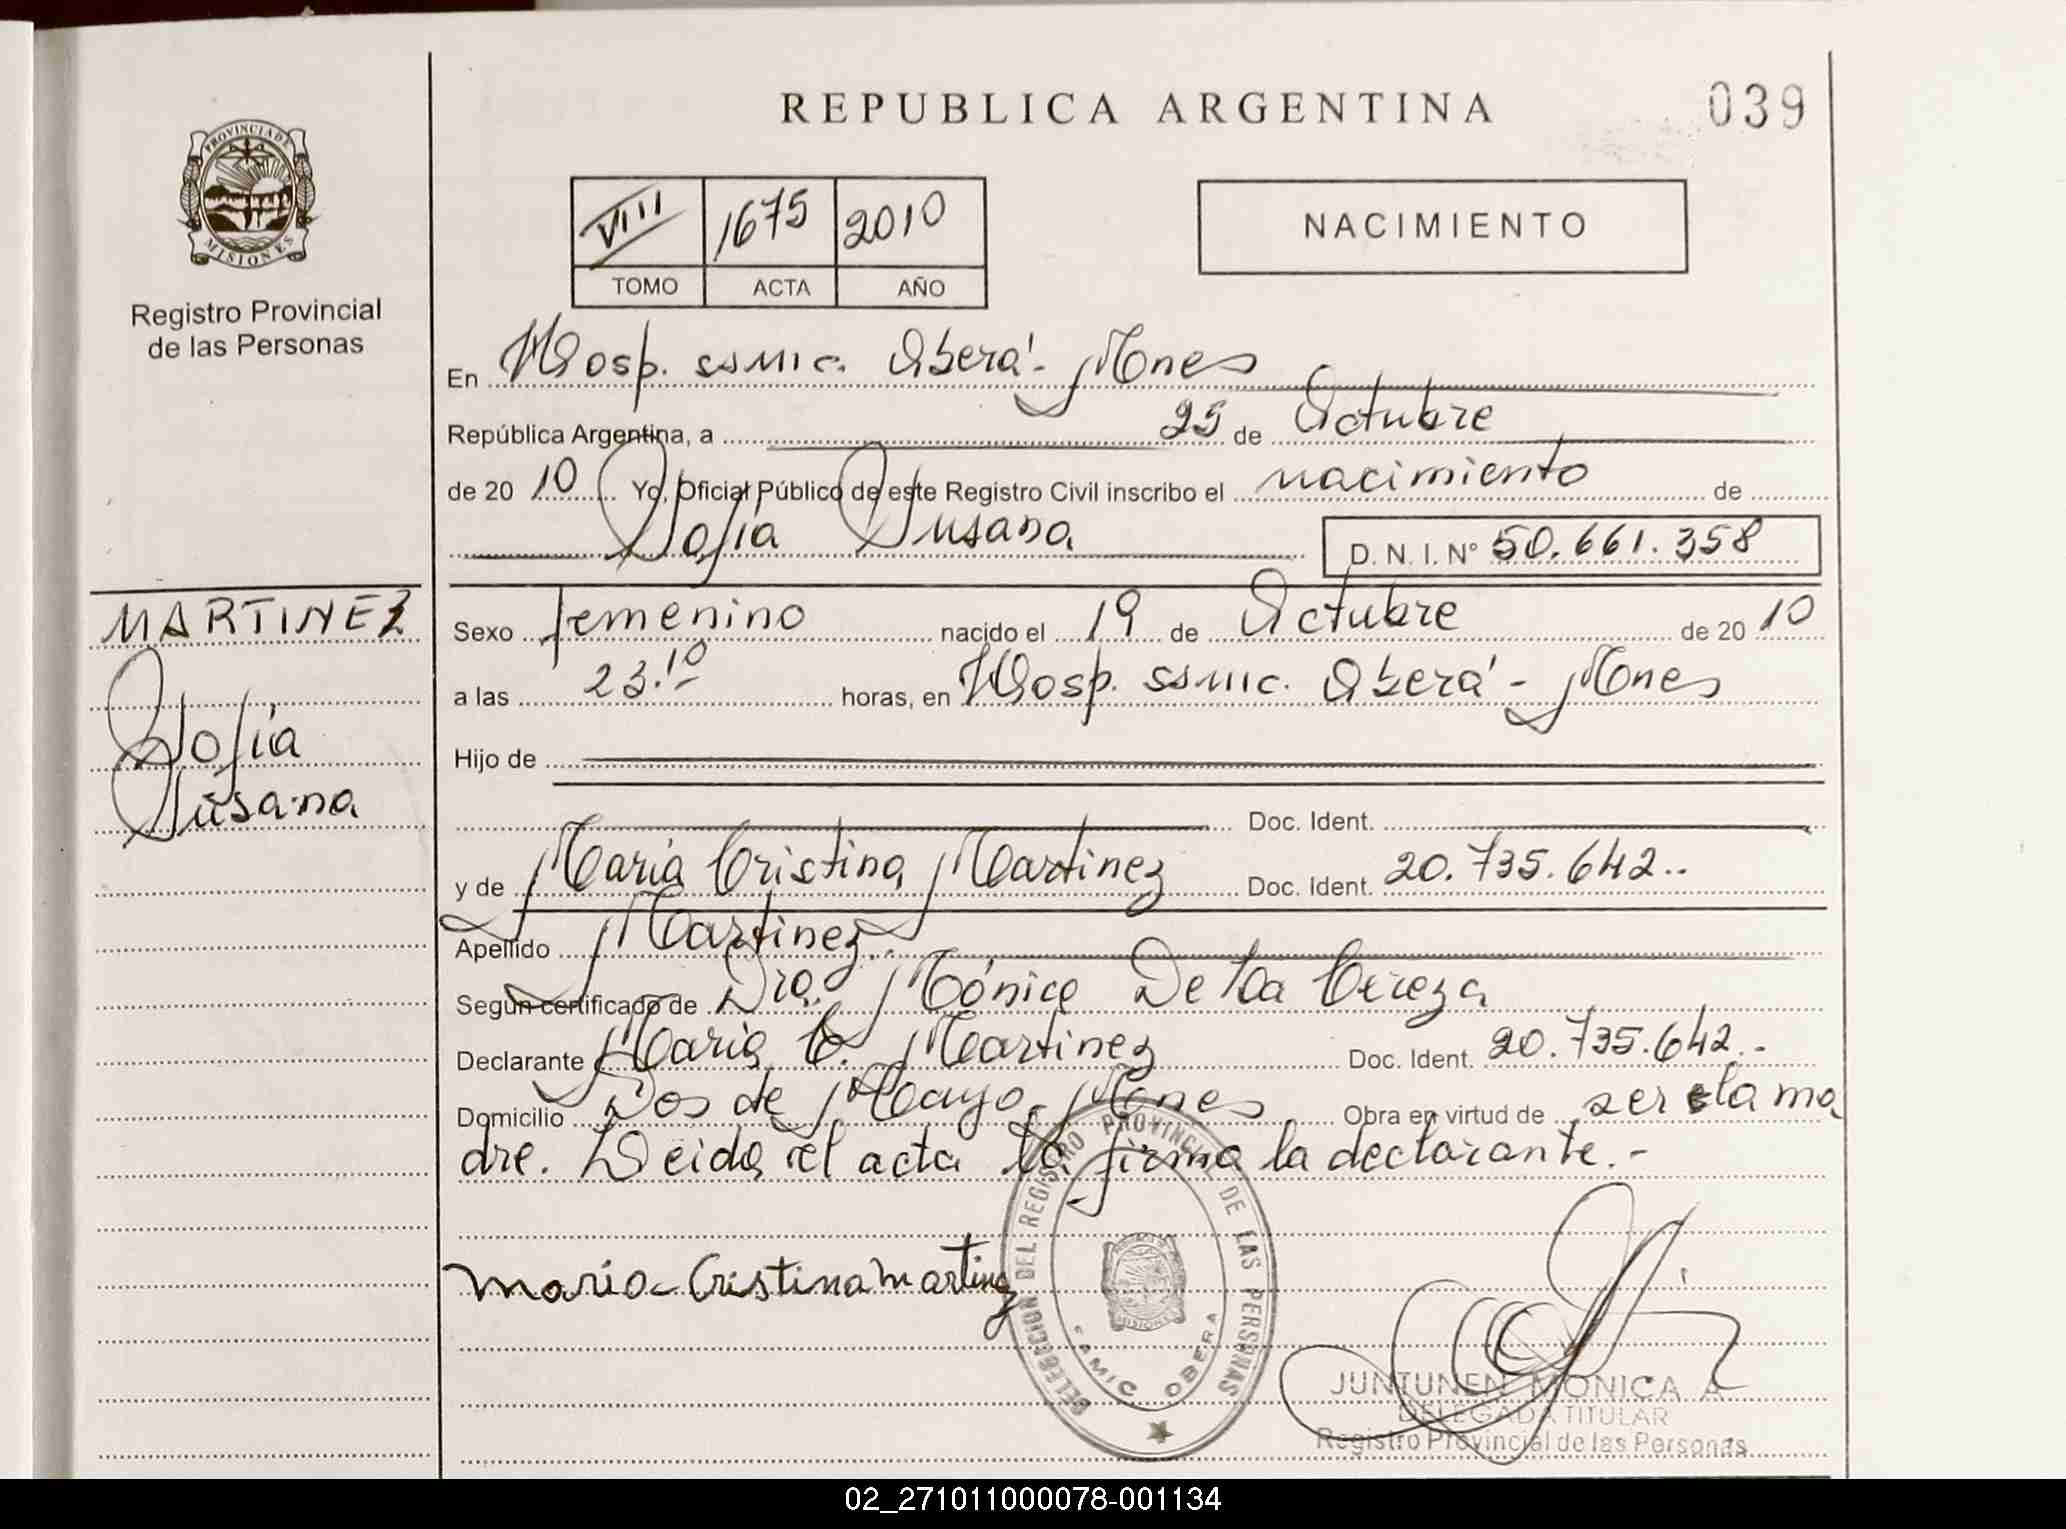 REPUBLICA ARGENTINA
039
PROVINCIA DE
MISIONES
Registro Provincial
de las Personas
VIII 1675 2010
TOMO ACTA AÑO
NACIMIENTO
En Hosp. SAMIC. Oberá - Mnes
República Argentina, a 25 de Octubre
de 20 10 Yo, Oficial Público de este Registro Civil inscribo el nacimiento de
Sofia Susana
D. N. I. Nº 50.661.358
MARTINEZ
Sofia
Susana
Sexo femenino nacido el 19 de Octubre de 20 10
a las 23.10 horas, en Hosp. SAMIC. Oberá - Mnes
Hijo de
Doc. Ident.
y de Maria Cristina Martinez Doc. Ident. 20.735.642..
Apellido Martinez..
Según certificado de Dra. Mónica De La
Declarante Maria C. Martinez Doc. Ident. 20.735.642.-
Domicilio Dos de Mayo - Mnes Obra en virtud de ser la ma
dre. Leida el acta la firma la declarante.-
Maria Cristina Martinez
DELEGACION DEL REGISTRO PROVINCIAL DE LAS PERSONAS
MISIONES
SAMIC OBERA
JUNTUNEN MONICA A
DELEGADA TITULAR
Registro Provincial de las Personas
02_271011000078-001134